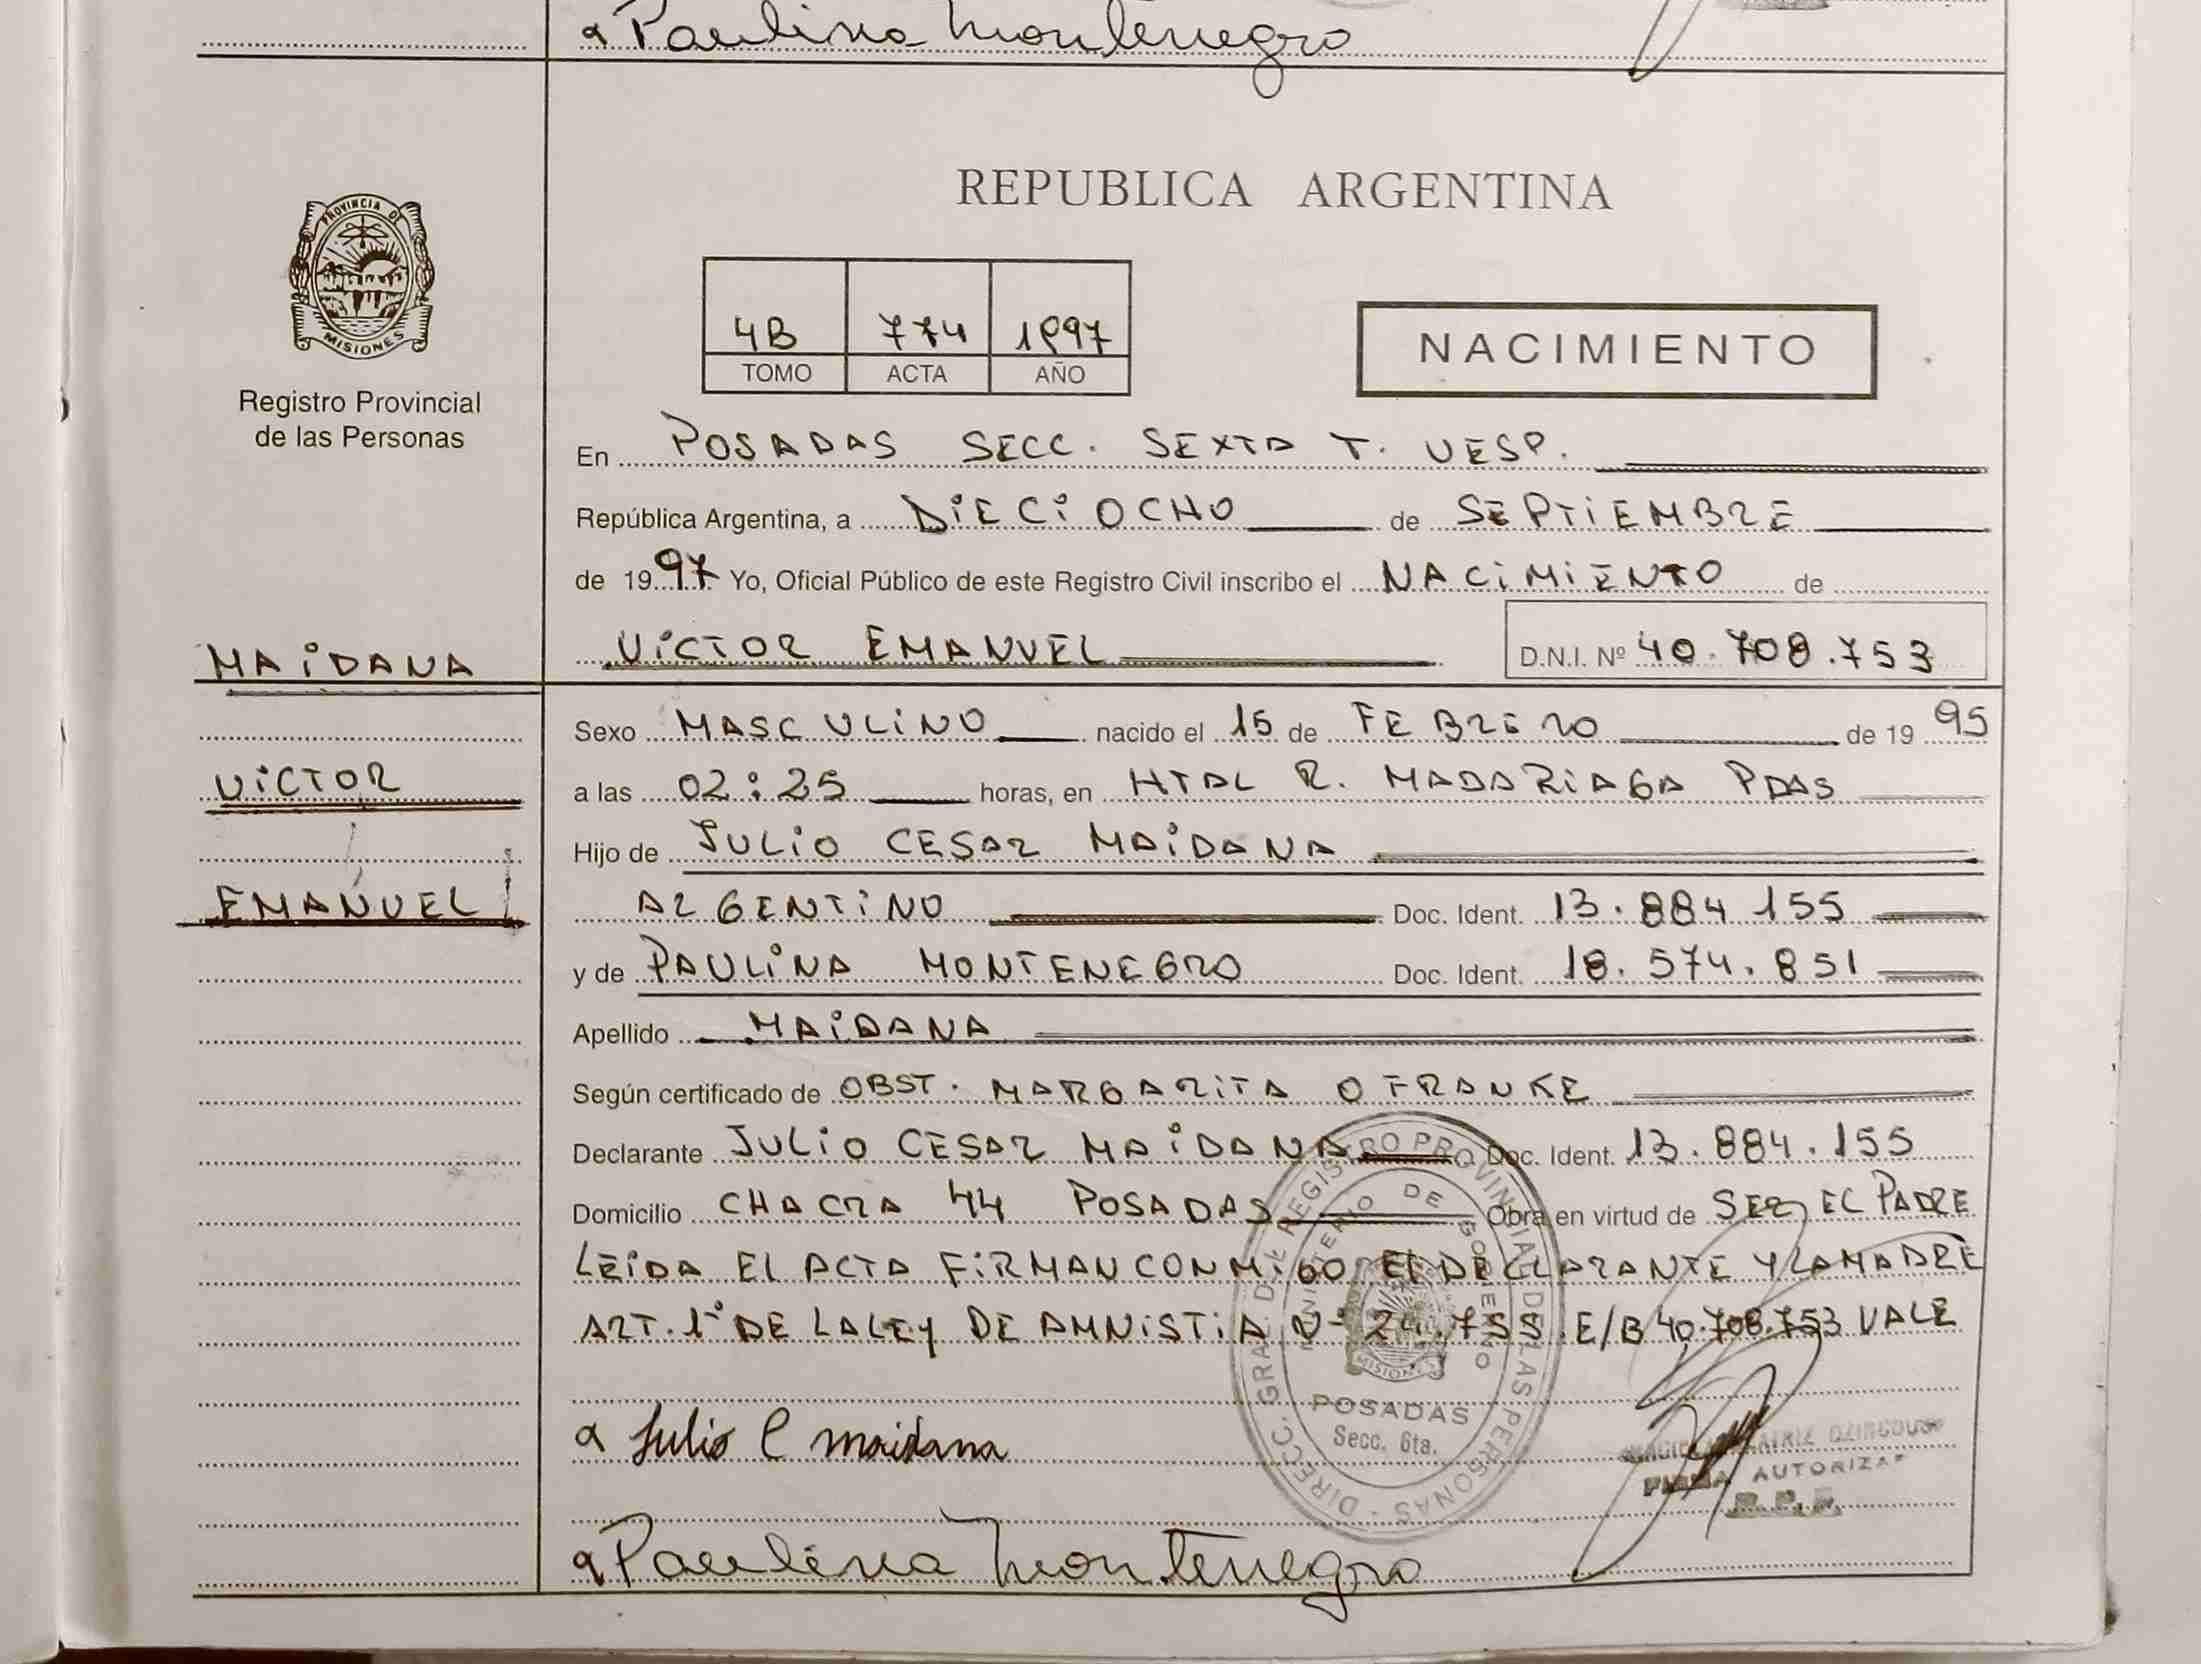 a Paulina Montenegro
PROVINCIA DE
MISIONES
Registro Provincial
de las Personas
REPUBLICA ARGENTINA
4B 774 1997
TOMO ACTA AÑO
NACIMIENTO
En POSADAS SECC. SEXTA T. VESP.
República Argentina, a DIECIOCHO de SEPTIEMBRE
de 1997 Yo, Oficial Público de este Registro Civil inscribo el NACIMIENTO de
VICTOR EMANUEL D.N.I. Nº 40.708.753
MAIDANA
VICTOR
EMANUEL
Sexo MASCULINO nacido el 15 de FEBRERO de 1995
a las 02:25 horas, en HTAL R. MADARIAGA PDAS
Hijo de JULIO CESAR MAIDANA
ARGENTINO Doc. Ident. 13.884 155
y de PAULINA MONTENEGRO Doc. Ident. 18.574.851
Apellido MAIDANA
Según certificado de OBST. MARGARITA O FRANKE
Declarante JULIO CESAR MAIDANA Doc. Ident. 13.884.155
Domicilio CHACRA 44 POSADAS Obra en virtud de SER EL PADRE
LEIDA EL ACTA FIRMAN CONMIGO EL DECLARANTE Y LA MADRE
ART. 1º DE LA LEY DE AMNISTIA Nº 24.755. E/B 40.708.753 VALE
DIRECC. GRAL DEL REGISTRO PROVINCIAL DE LAS PERSONAS
MINISTERIO DE GOBIERNO
MISIONES
POSADAS
Secc. 6ta.
a Julio C maidana
BEATRIZ
FIRMA AUTORIZA
R. P. P.
a Paulina Montenegro